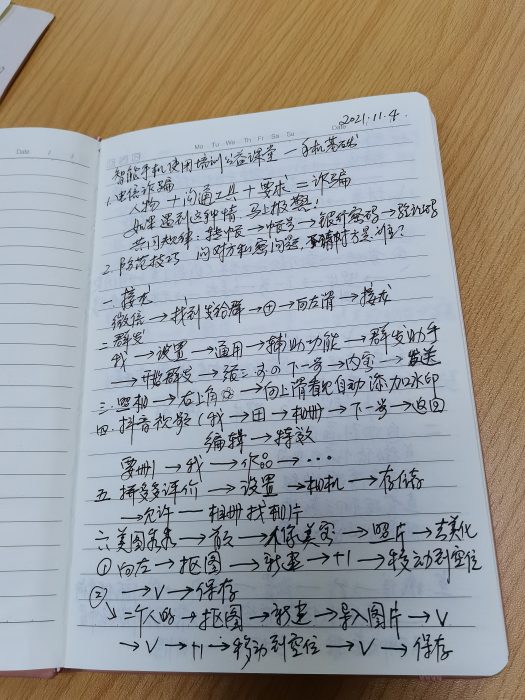 2021.11.4.
Date
Mo Tu We Th Fr Sa Su Date
智能手机使用培训公益课堂一手机基础
1.电信诈骗
人物+沟通工具+要求=诈骗
如果遇到这种情 马上报警!
共同规律:转帐→帐号→银行密码→验证码
2.防范技巧 问对方私密问题,对方是谁?
一.接龙
微信→找到发给群→⊕→向左滑→接龙
二.群发
我→设置→通用→辅助功能→群发助手
→群发→下一步→内容→发送
三.照相→右上角→向上滑看见自动添加水印
四.抖音视频(我→田→相册)→下一步→返回
编辑→特效
要删→我→作品→···
五 拼多多评价→设置→相机→存储
→允许一相册找相片
六.美图秀秀→首页→人像美容→照片→去美化
①向左→抠图→新建→+1→移动到空位
→V→保存
② →二个人的→抠图→新建→导入图片→V
→V→+1→移动到空位→V→保存